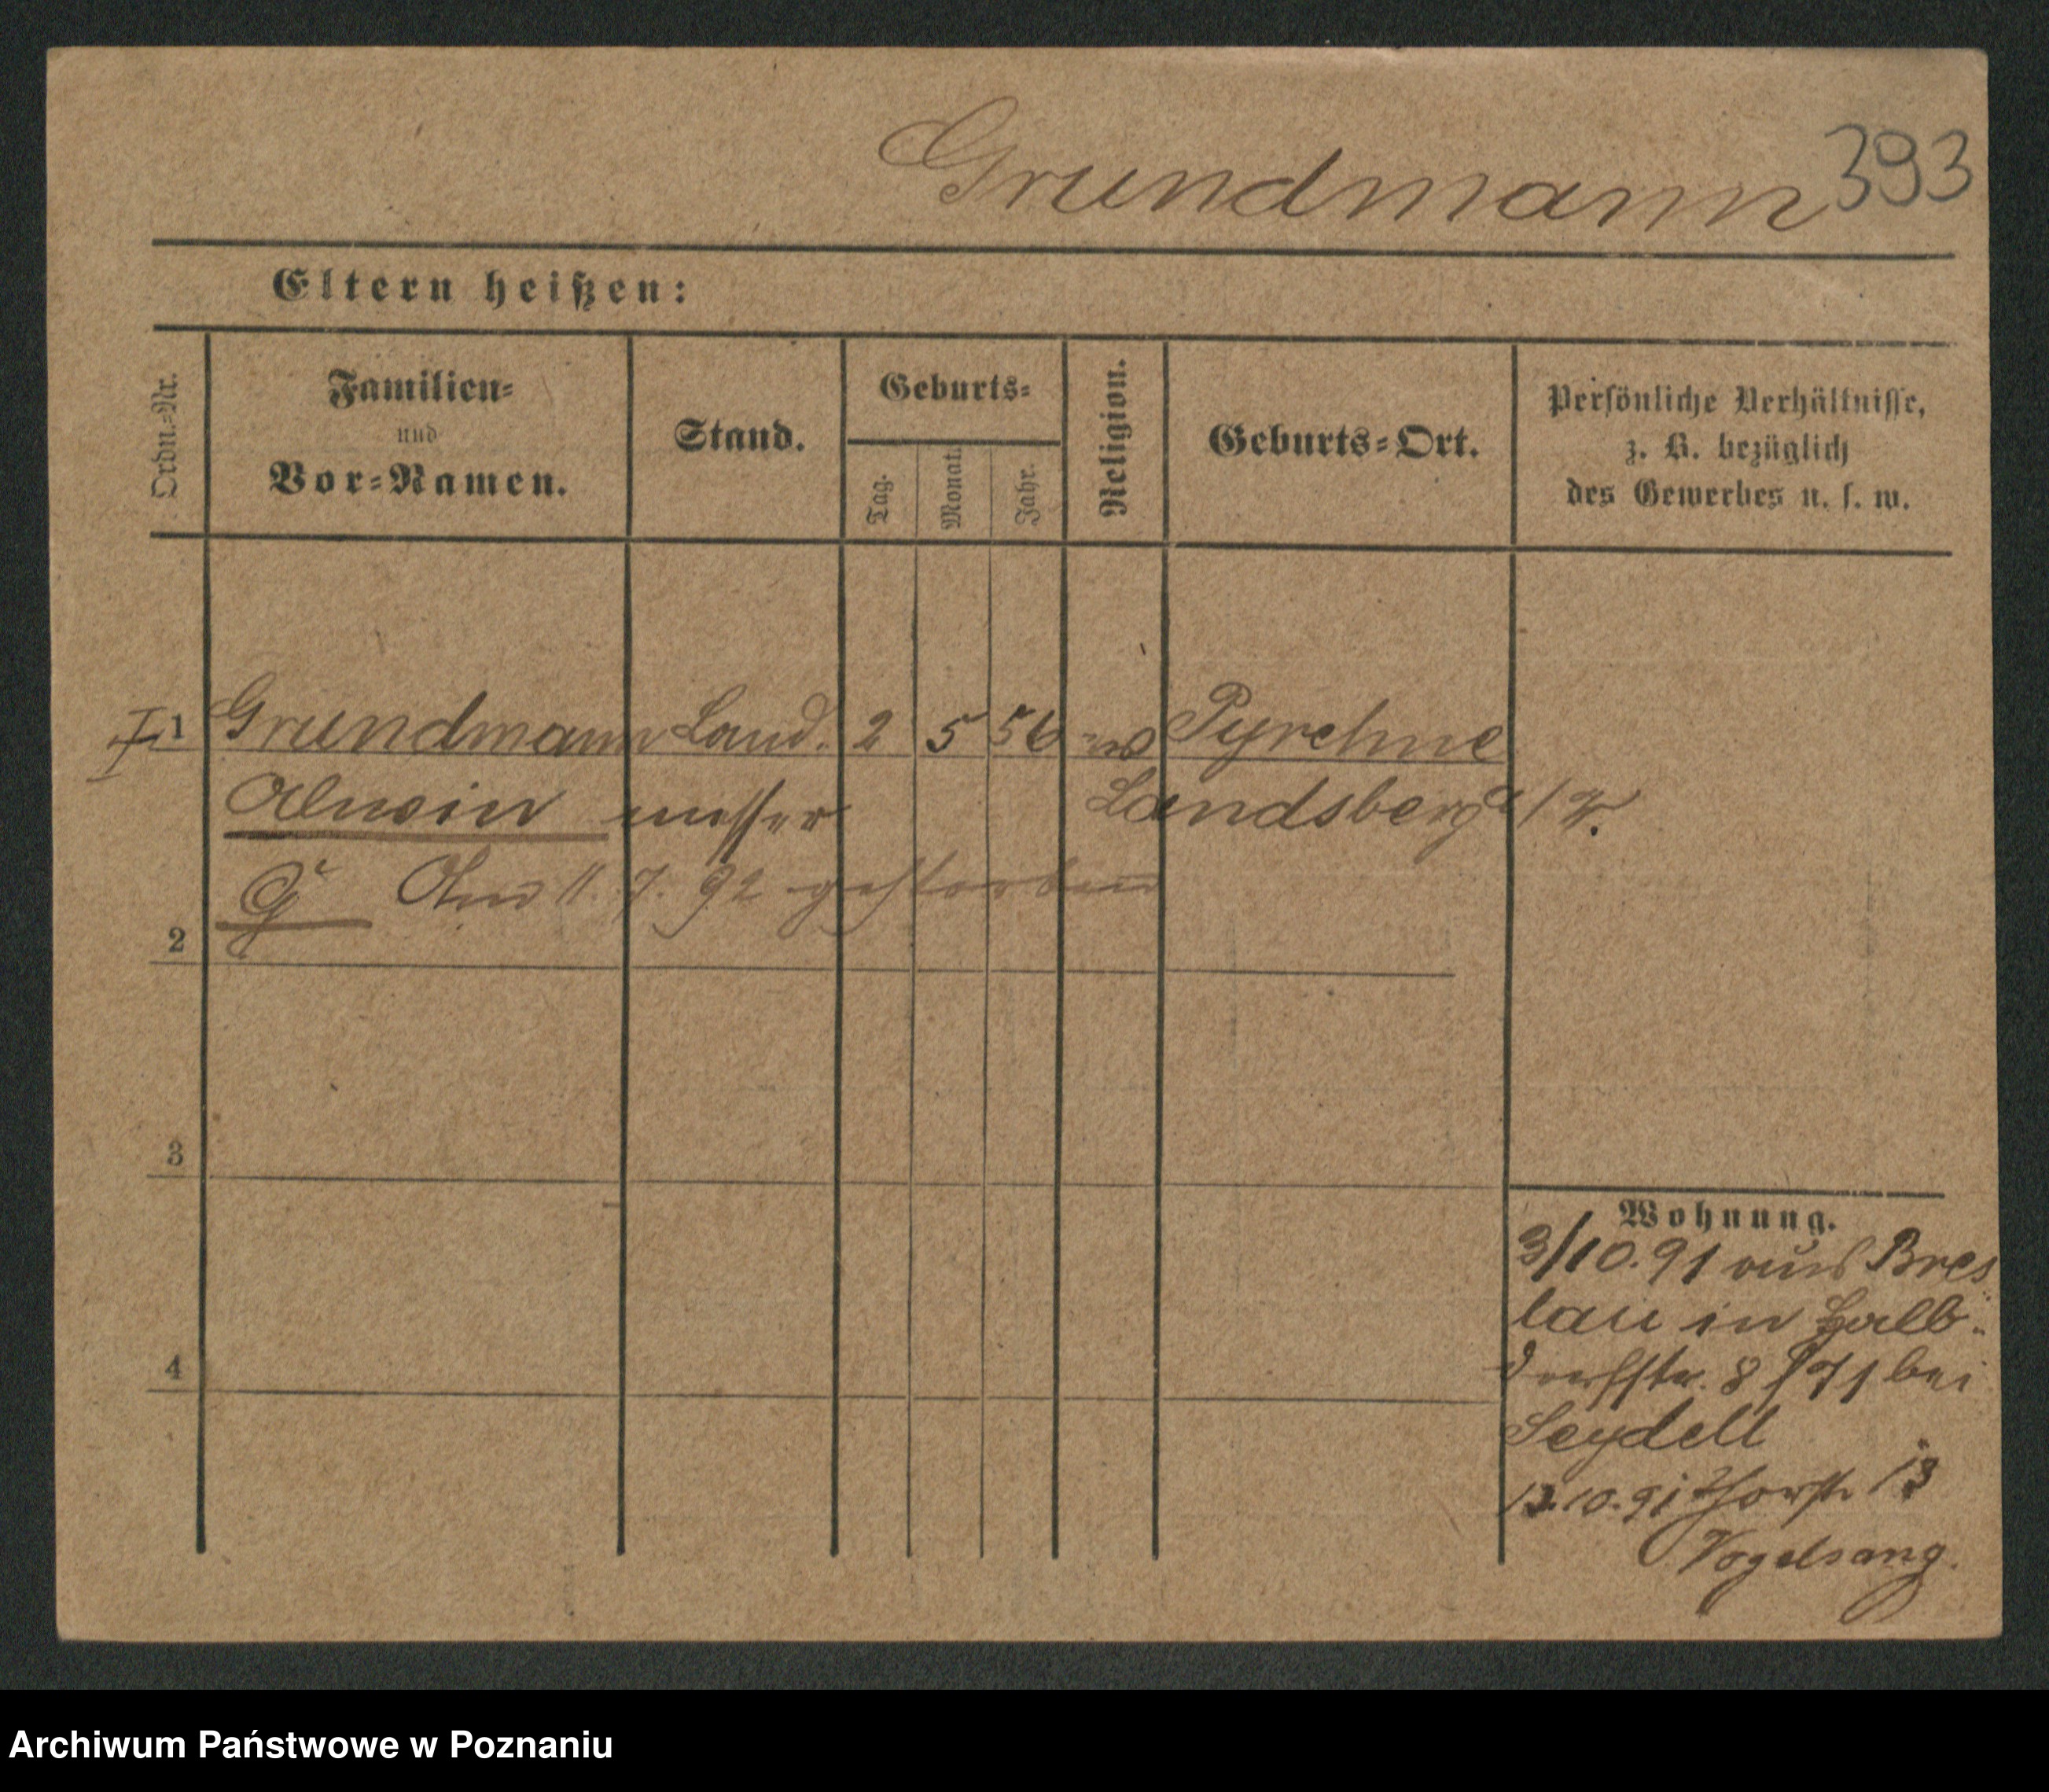 Grundmann 393
Eltern heißen:
Ordn.=Nr.
Familien=
und
Vor=Namen.
Stand.
Geburts=
Tag.
Monat.
Jahr.
Religion.
Geburts=Ort.
Persönliche Verhältnisse,
z. B. bezüglich
des Gewerbes u. s. w.
I 1 Grundmann Land. 2 5 56 Pyrehne
Alwin messer Landsberg a/W.
Am 11. 7. 92 gestorben
2
3
4
Wohnung.
3/10.91 aus Bres
lau in Halb-
dorfstr. 8 bei
Seydell
13.10.91 13
Vogelsang.
Archiwum Państwowe w Poznaniu